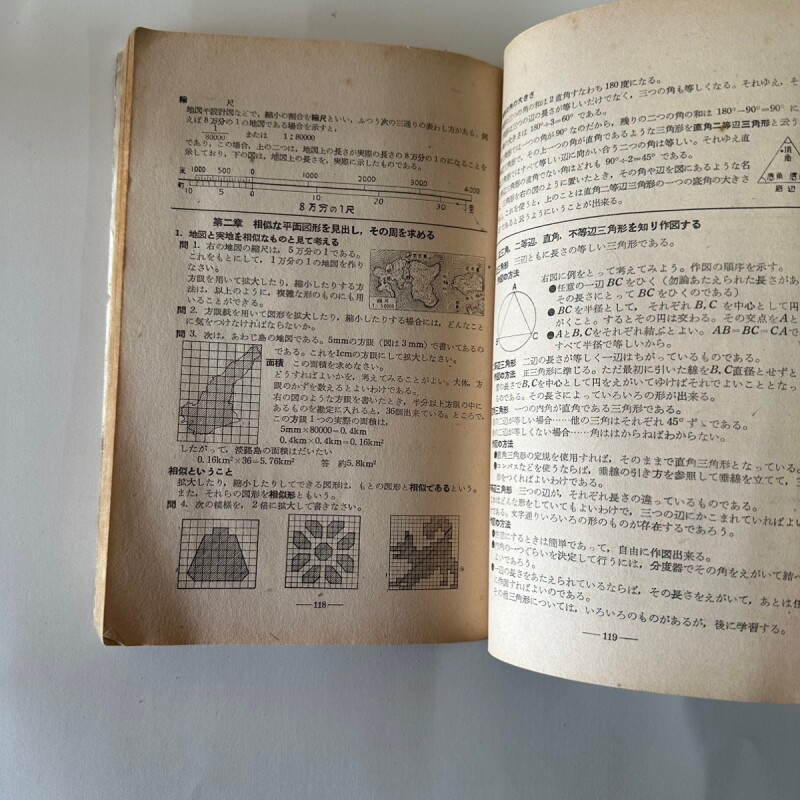 縮　　尺
地図や設計図などで，縮小の割合を縮尺といい，ふつう次の三通りの表わし方がある。例
えば8万分の1の地図である場合を示すと，
1/80000 または 1:80000
であり，この場合，上の二つは，地図上の長さが実際の長さの8万分の1のになることを
示しており，下の図は，地図上の長さを，実際に示したものである。
米 1000 500 0 1000 2000 3000 4000
町 10 5 0 10 20 30 1里
8万分の1尺
第二章　相似な平面図形を見出し，その周を求める
1. 地図と実地を相似なものと見て考える
問 1. 右の地図の縮尺は，5万分の1である。
これをもとにして，1万分の1の地図を作り
なさい。
方眼を用いて拡大したり，縮小したりする方
法は，以上のように，複雑な形のものにも用
いることができる。
問 2. 方眼紙を用いて図形を拡大したり，縮小したりする場合には，どんなこと
に気をつけなければならないか。
問 3. 次は，あわじ島の地図である。5mmの方眼（図は3mm）で書いてあるの
である。これを1cmの方眼にして拡大しなさい。
面積　この面積を求めなさい。
どうすればよいかを，考えてみることがよい。大体，方
眼のかずを数えるとよいわけである。
右の図のような方眼を書いたとき，半分以上方眼の中に
あるものを勘定に入れると，36個出来ている。ところで，
この方眼1つの実際の面積は，
5mm×80000=0.4km
0.4km×0.4km=0.16km²
したがって，淡路島の面積はだいたい
0.16km²×36=5.76km²　　答　約5.8km²
相似ということ
拡大したり，縮小したりしてできる図形は，もとの図形と相似であるという。
また，それらの図形を相似形ともいう。
問 4. 次の模様を，2倍に拡大して書きなさい。
—118—
の大きさ
の和は2直角すなわち180度になる。
三つの辺の長さが等しいだけでなく，三つの角も等しくなる。それゆえ，そ
の大きさは 180°÷3=60° である。
一つの角が90°なのだから，残りの二つの角の和は 180°−90°=90° に
の上一つの角が直角であるような三角形を直角二等辺三角形と云う
ではすべて等しい辺に向かい合う二つの角は等しい。それゆえ直
三角形の直角でない角はどれも 90°÷2=45° である。
三角形を右の図のように置いたとき，その角や辺を図にあるような名
これを使うと，上のことは直角二等辺三角形の一つの底角の大きさ
であると云うようにいうことが出来る。
頂角
底角
底辺
三角，二等辺，直角，不等辺三角形を知り作図する
三辺ともに長さの等しい三角形である。
の方法　右図に例をとって考えてみよう。作図の順序を示す。
●任意の一辺BCをひく（勿論あたえられた長さがあ
その長さにとってBCをひくのである）
●BCを半径として，それぞれB, Cを中心として円
がくこと。するとその円は交わる。その交点をAと
●AとB, Cをそれぞれ結ぶとよい。AB=BC=CAで
すべて半径で等しいから。
A
B
C
辺三角形　二辺の長さが等しく一辺はちがっているものである。
の方法　正三角形に準じる。ただ最初に引いた線をB, C直径とせずと
の長さでB, Cを中心として円をえがいてゆけばそれでよいこととな
のである。その長さによっていろいろの形が出来る。
三角形　一つの内角が直角である三角形である。
の二辺が等しい場合……他の三角はそれぞれ45°ずつである。
の二辺が等しくない場合……角ははからねばわからない。
の方法
●直角三角形の定規を使用すれば，そのままで直角三角形となっている。
●コンパスなどを使うならば，垂線の引き方を参照して垂線を立てて，三
形をつくればよいわけである。
辺三角形　三つの辺が，それぞれ長さの違っているものである。
はどんな形をしていてもよいわけで，三つの辺にかこまれていればよい
である。文字通りいろいろの形のものが存在するであろう。
の方法
●にするときは簡単であって，自由に作図出来る。
●内角の一つぐらいを決定して行うには，分度器でその角をえがいて結べ
よいであろう。
●一辺の長さをあたえられているならば，その長さをえがいて，あとは任
に作図すればよいのである。
その他三角形については，いろいろのものがあるが，後に学習する。
—119—